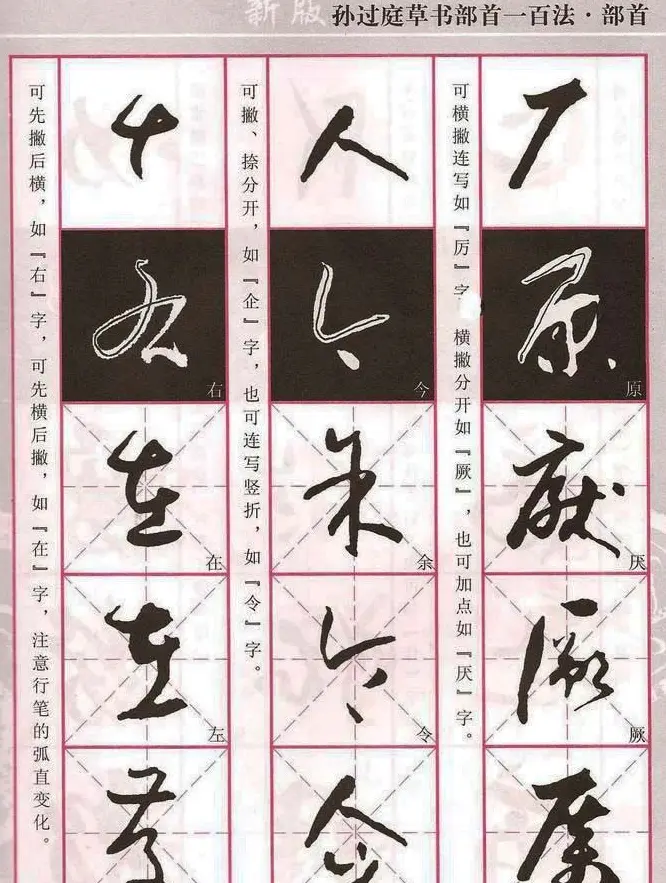 新版
孙过庭草书部首一百法·部首
可横撇连写如『厉』字 横撇分开如『厥』，也可加点如『厌』字。
厂
原
原
厌
厌
厥
厥
可撇、捺分开，如『企』字，也可连写竖折，如『令』字。
人
今
今
余
余
令
令
可先撇后横，如『右』字，可先横后撇，如『在』字，注意行笔的弧直变化。
右
右
在
在
左
左